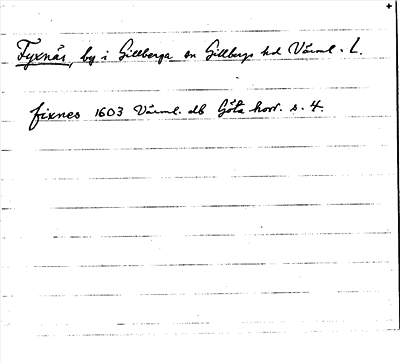 Fyxnäs, by i Gillberga sn Gillbergs hd Värml. L.
fixnes 1603 Värml. db Göta hovr. s. 4.